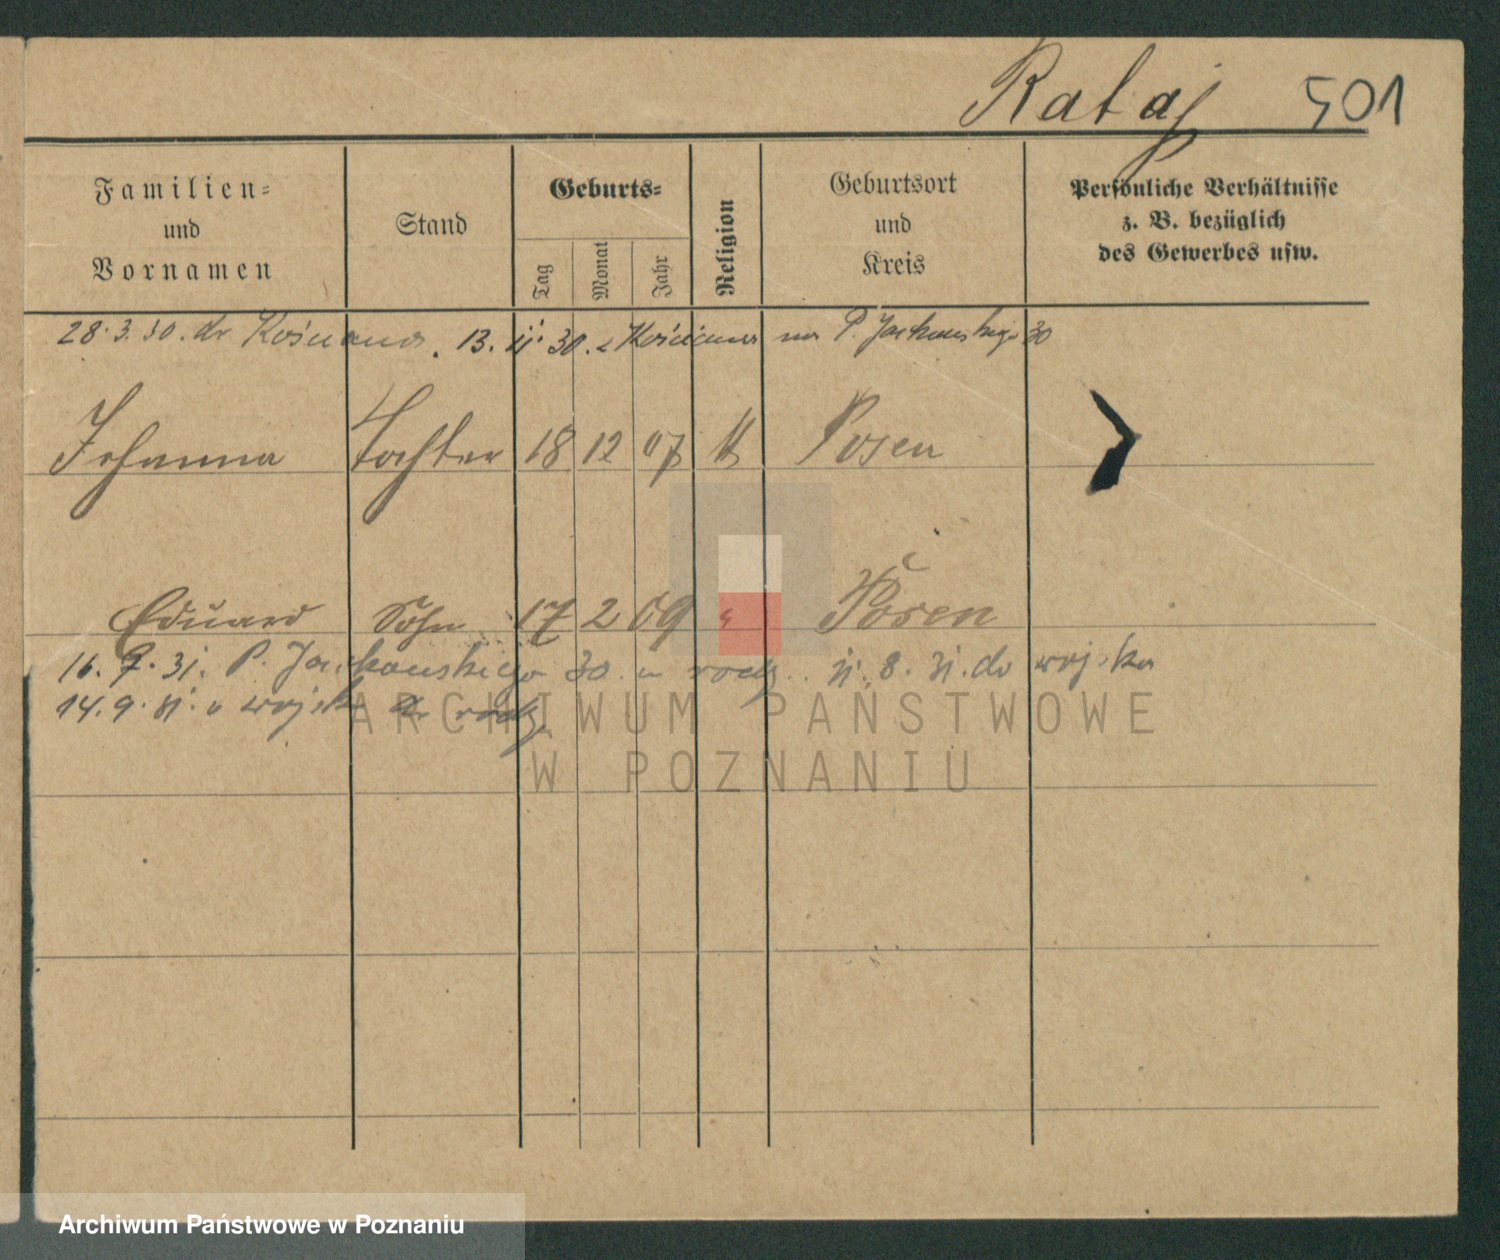 Rataj 501
Familien=
und
Vornamen
Stand
Geburts=
Tag
Monat
Jahr
Religion
Geburtsort
und
Kreis
Persönliche Verhältnisse
z. B. bezüglich
des Gewerbes usw.
28.3.30. do Kościana. 13. 30. z Kościana na P. Jackowskiego 30
Johanna Tochter 18 12 07 k Posen
Eduard Sohn 17 2 09 " Posen
16. 7. 31. P. Jackowskiego 30 u rodz. 8. 31. do wojska
14.9. z wojska do rodz.
ARCHIWUM PAŃSTWOWE
W POZNANIU
Archiwum Państwowe w Poznaniu